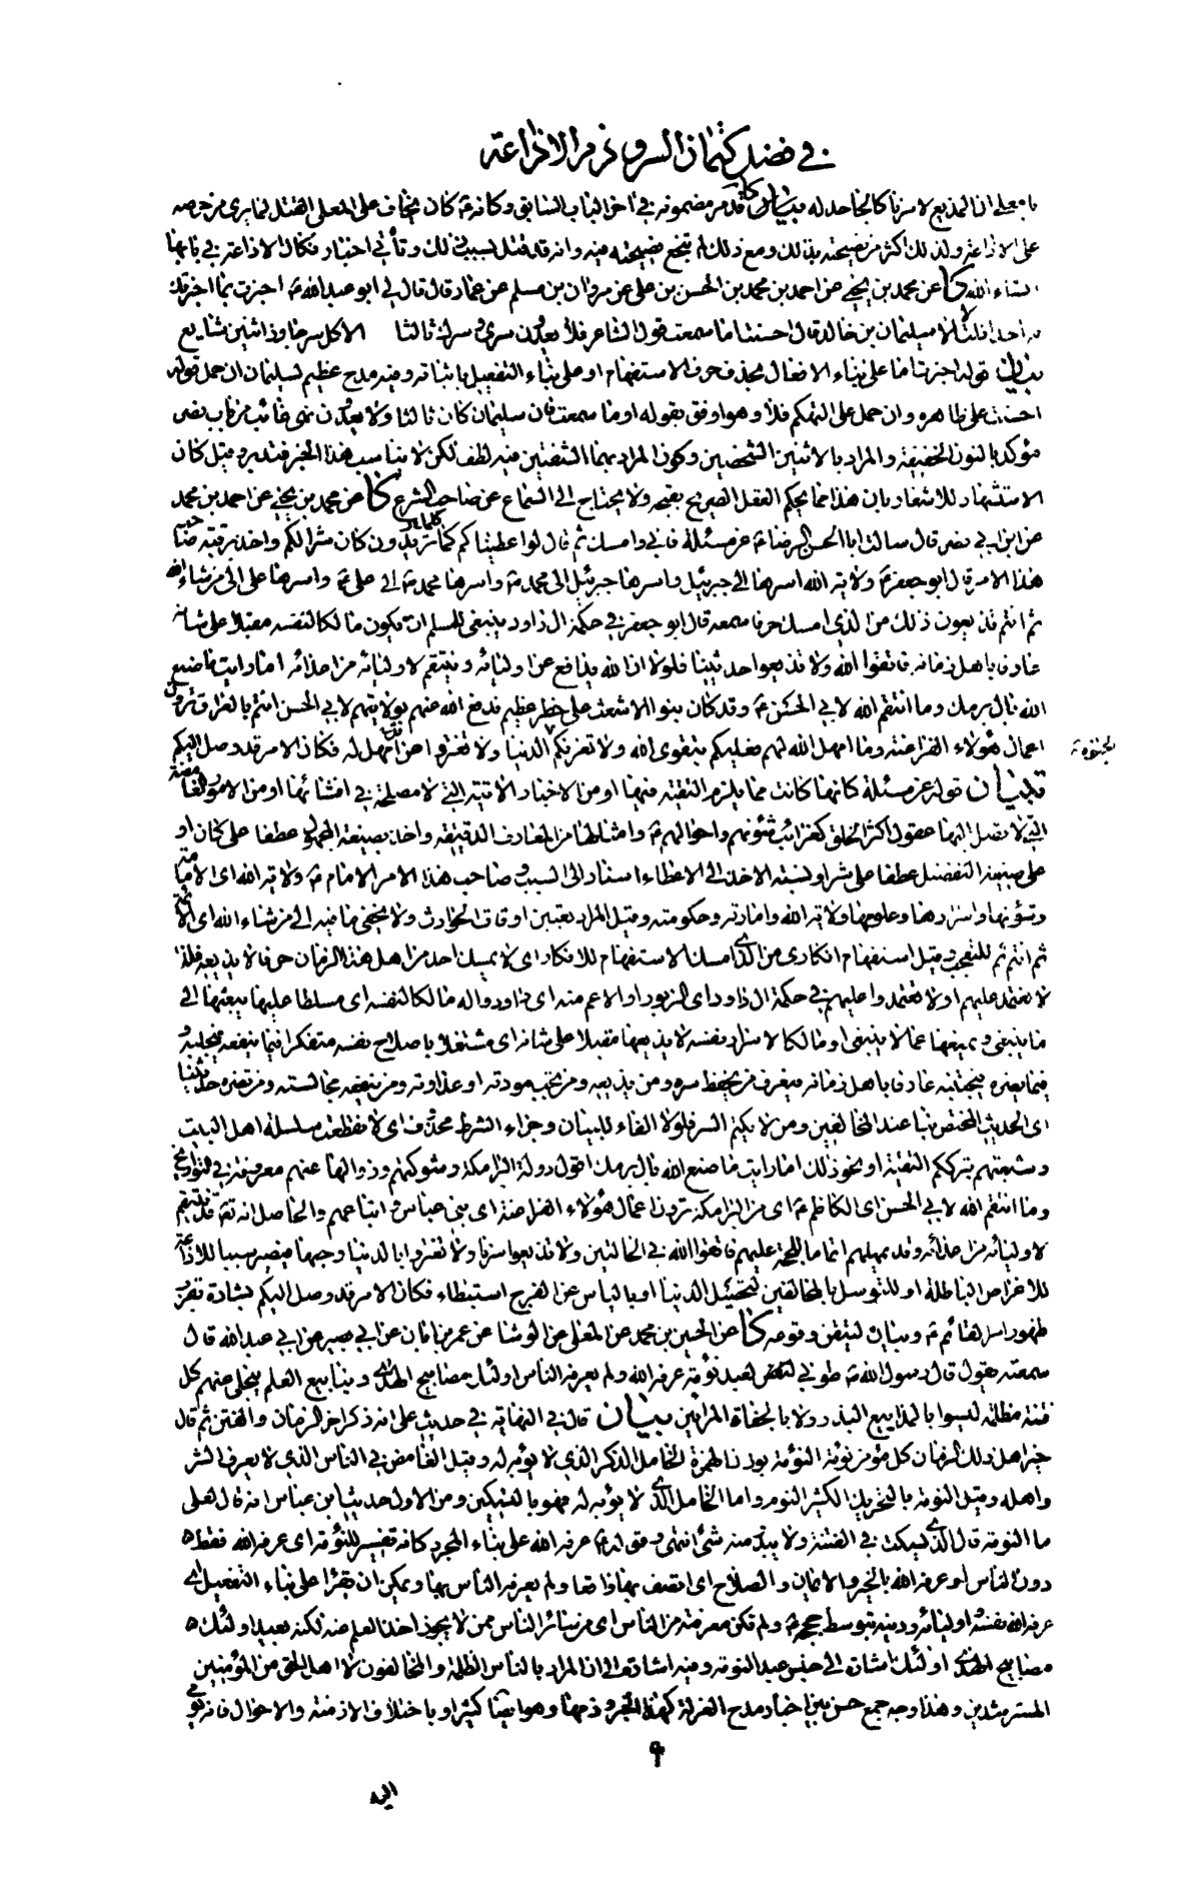 في فضل كتمان السر و ذم الاذاعة
يا معلى ان المذيع لامرنا كالجاحد له بيان قد مر مضمونه في اخر الباب السابق و كانه ع كان يخاف على المعلى القتل لما يرى من حرصه
على الاذاعة ولذلك اكثر من نصيحته بذلك و مع ذلك لم تنجع نصيحته فيه و انه قد قتل بسبب ذلك و تأتي اخبار نكال الاذاعة في بابها
انشاء الله كا عن محمد بن يحيى عن احمد بن محمد بن الحسن بن علي عن مروان بن مسلم عن عمار قال قال لي ابو عبد الله ع اخبرت بما اخبرتك
به احدا قلت لا الا سليمان بن خالد قال احسنت اما سمعت قول الشاعر فلا يعدون سري و سرك ثالثا الا كل سر جاوز اثنين شايع
بيان قوله اخبرت اما على بناء الافعال بحذف حرف الاستفهام او على بناء التفعيل باثباته و فيه مدح عظيم لسليمان ان حمل قوله
احسنت على ظاهره و ان حمل على التهكم فلا و هو اوفق بقوله او ما سمعت فان سليمان كان ثالثا و لا يعدون نهي غائب من باب نصر
مؤكد بالنون الخفيفة و المراد بالاثنين الشخصين و كون المراد بهما الشفتين فيه لطف لكن لا يناسب هذا الخبر فتدبر و قيل كان
الاستشهاد للاشعار بان هذا مما يحكم العقل الصريح بقبحه و لا يحتاج الى السماع عن صاحب الشرع كا عن محمد بن يحيى عن احمد بن محمد
عن ابن ابي نصر قال سالت ابا الحسن الرضا ع عن مسئلة فابى و امسك ثم قال لو اعطيناكم كلما تريدون كان شرا لكم و اخذ برقبة صاحب
هذا الامر قال ابو جعفر ع ولاية الله اسرها الى جبرئيل و اسرها جبرئيل الى محمد ص و اسرها محمد ص الى علي ع و اسرها علي الى من شاء الله
ثم انتم تذيعون ذلك من الذي امسك حرفا سمعه قال ابو جعفر في حكمة ال داود ينبغي للمسلم ان يكون مالكا لنفسه مقبلا على شانه
عارفا باهل زمانه فاتقوا الله و لا تذيعوا حديثنا فلولا ان الله يدافع عن اوليائه و ينتقم لاوليائه من اعدائه اما رايت ما صنع
الله بال برمك و ما انتقم الله لابي الحسن ع و قد كان بنو الاشعث على خطر عظيم فدفع الله عنهم بولايتهم لابي الحسن انتم بالعراق ترون
اعمال هؤلاء الفراعنة و ما امهل الله لهم فعليكم بتقوى الله و لا تغرنكم الدنيا و لا تغتروا بمن امهل له فكان الامر قد وصل اليكم
بيان قوله عن مسئلة كانها كانت مما يلزم التقية فيها او من الاخبار الاتية التي لا مصلحة في افشائها او من الامور الغامضة
التي لا تصل اليها عقول اكثر الخلق كغرائب شئونهم و احوالهم ع و امثالها من المعارف الدقيقة و اخذ بصيغة المجهول عطفا على كان او
على صيغة التفضيل عطفا على شرا و نسبة الاخذ الى الاعطاء اسناد الى السبب و صاحب هذا الامر الامام ع ولاية الله اي الامامة
و شؤنها و اسرارها و علومها ولاية الله و امارته و حكومته و قيل المراد تعيين اوقات الحوادث و لا يخفى ما فيه الى من شاء الله اي الائمة
ثم انتم ثم للتعجب و قيل استفهام انكاري من الذي امسك الاستفهام للانكار اي لا يمسك احد من اهل هذا الزمان حرفا لا يذيعه فلذا
لا نعتمد عليهم او لا تعتمدوا عليهم في حكمة ال داود اي الزبور او الاعم منه اي داود و اله مالكا لنفسه اي مسلطا عليها يبعثها الى
ما ينبغي و يمنعها عما لا ينبغي او مالكا لاسرار نفسه لا يذيعها مقبلا على شانه اي مشتغلا باصلاح نفسه متفكرا فيما ينفعه فيجلبه و
فيما يضره فيجتنبه عارفا باهل زمانه فيعرف من يحفظ سره و من يذيعه و من يجب مودته او عداوته و من ينفعه مجالسته و من تضره حديثنا
اي الحديث المختص بنا عند المخالفين و من لا يكتم السر فلولا الفاء للبيان و جزاء الشرط محذوف اي لانقطعت سلسلة اهل البيت
و شيعتهم بترككم التقية او نحو ذلك اما رايت ما صنع الله بال برمك اقول دولة البرامكة و شوكتهم و زوالها عنهم معروفة في التواريخ
و ما انتقم الله لابي الحسن اي الكاظم ع اي من البرامكة ترون اعمال هؤلاء الفراعنة اي بني عباس و اتباعهم و الحاصل انه تعالى قد ينتقم
لاوليائه من اعدائه و قد يمهلهم اتماما للحجة عليهم فاتقوا الله في الحالتين و لا تذيعوا سرنا و لا تغتروا بالدنيا و حبها فيصير سببا للاذاعة
للاغراض الباطلة او للتوسل بالمخالفين لتحصيل الدنيا او بالياس عن الفرج استبطاء فكان الامر قد وصل اليكم بشارة بقرب
ظهور امر القائم ع و بيان لتيقن وقوعه كا عن الحسين بن محمد عن المعلى عن الوشا عن عمر بن ابان عن ابي بصير عن ابي عبد الله قال
سمعته يقول قال رسول الله ص طوبى لعبد نومة عرفه الله و لم يعرفه الناس اولئك مصابيح الهدى و ينابيع العلم ينجلي عنهم كل
فتنة مظلمة ليسوا بالمذاييع البذر و لا بالجفاة المرائين بيان قال في النهاية في حديث علي انه ذكر اخر الزمان و الفتن ثم قال
خير اهل ذلك الزمان كل مؤمن نومة النومة بوزن الهمزة الخامل الذكر الذي لا يؤبه له و قيل الغامض في الناس الذي لا يعرف الشر
و اهله و قيل النومة بالتحريك الكثير النوم و اما الخامل الذي لا يؤبه له فهو بالتسكين و من الاول حديث ابن عباس انه قال لعلي
ما النومة قال الذي يسكت في الفتنة و لا يبدو منه شئ انتهى و قوله ع عرفه الله على بناء المجرد كانه تفسير للنومة اي عرفه الله فقط
دون الناس او عرفه الله بالخير و الايمان و الصلاح اي اتصف بها واقعا و لم يعرفه الناس بها و يمكن ان يقرا على بناء التفعيل اي
عرفه الله نفسه و اوليائه و دينه بتوسط حججه ع و لم تكن معرفته من الناس اي من سائر الناس ممن لا يجوز اخذ العلم عنه لكنه بعيد اولئك
مصابيح الهدى اولئك اشارة الى جنس عبد النومة و فيه اشارة الى ان المراد بالناس الظلمة و المخالفون لا اهل الحق من المؤمنين
المسترشدين و هذا وجه جمع حسن بين اخبار مدح العزلة كهذا الخبر و ذمها و هو ايضا كثير او باختلاف الازمنة و الاحوال فانه يومي
٩
اليه